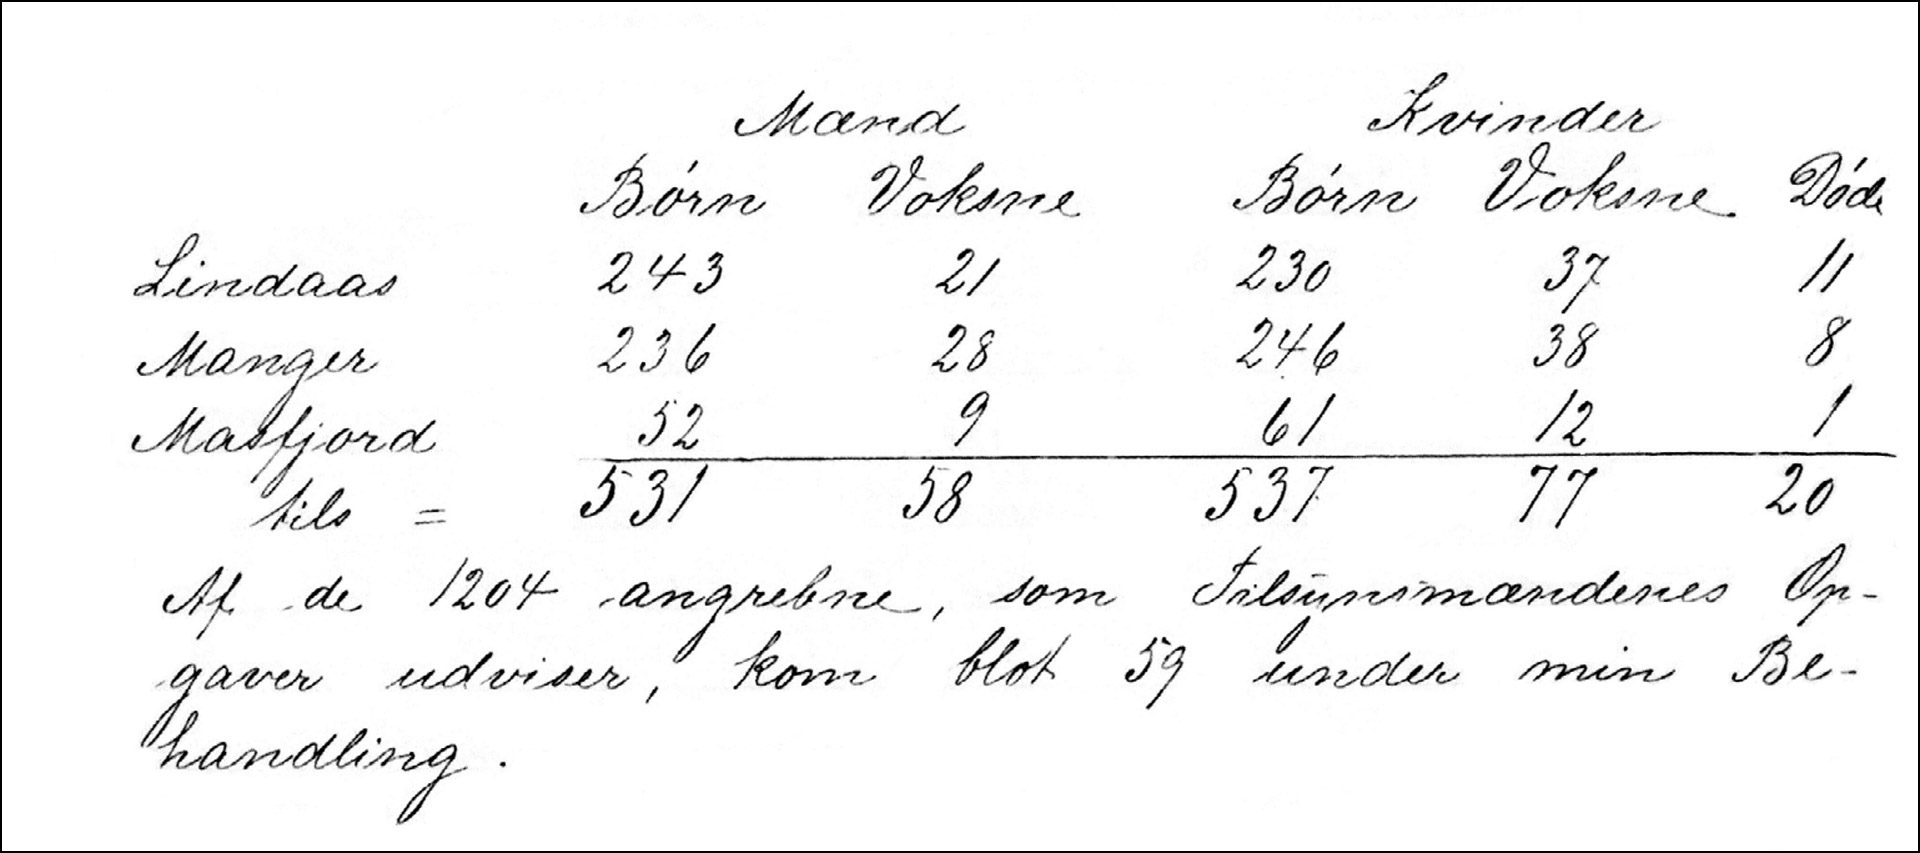 Mænd Kvinder
Börn Voksne Börn Voksne Döde
Lindaas 243 21 230 37 11
Manger 236 28 246 38 8
Masfjord 52 9 61 12 1
tils = 531 58 537 77 20
Af de 1204 angrebne, som Tilsynsmændenes Op-
gaver udviser, kom blot 59 under min Be-
handling.